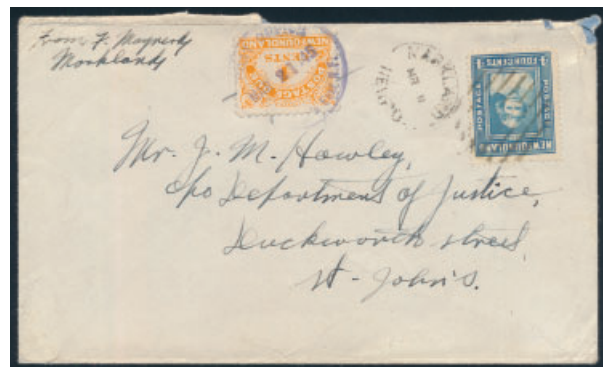 From F. Maynard
Marklands
NEWFOUNDLAND
CENTS
POSTAGE DUE
MARKLAND
NEWFOUNDLAND
POSTAGE
POSTAGE
4 FOUR CENTS 4
Mr. J. M. Hawley,
c/o Department of Justice,
Duckworth street,
St. John's.